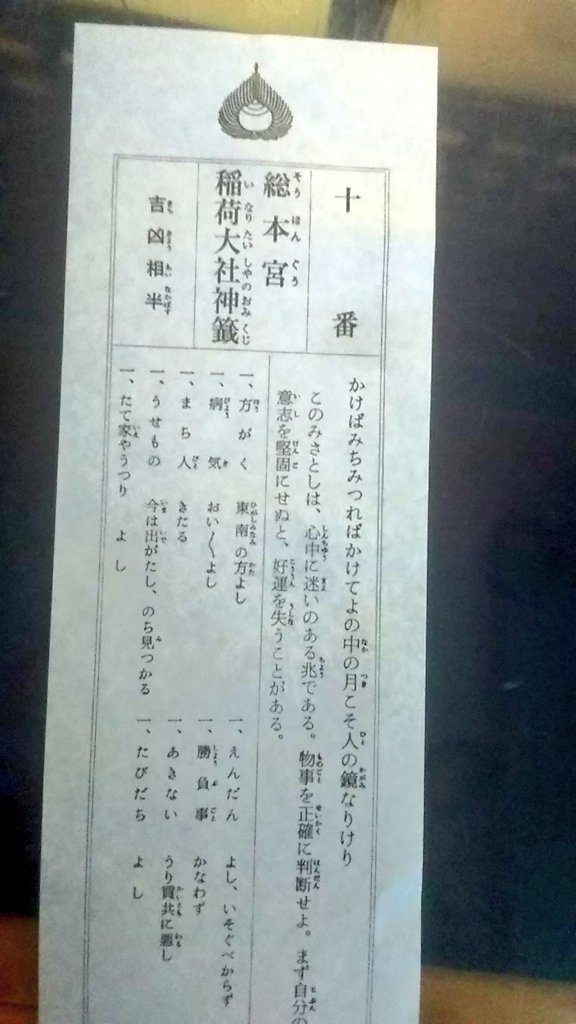 十番
総本宮
稲荷大社神籤
吉凶相半
かけばみちみつればかけてよの中の月こそ人の鏡なりけり
このみさとしは、心中に迷いのある兆である。物事を正確に判断せよ。まず自分の
意志を堅固にせぬと、好運を失うことがある。
一、方がく 東南の方よし
一、病気 おい〱よし
一、まち人 きたる
一、うせもの 今は出がたし、のち見つかる
一、たて家やうつり よし
一、えんだん よし、いそぐべからず
一、勝負事 かなわず
一、あきない うり買共に悪し
一、たびだち よし